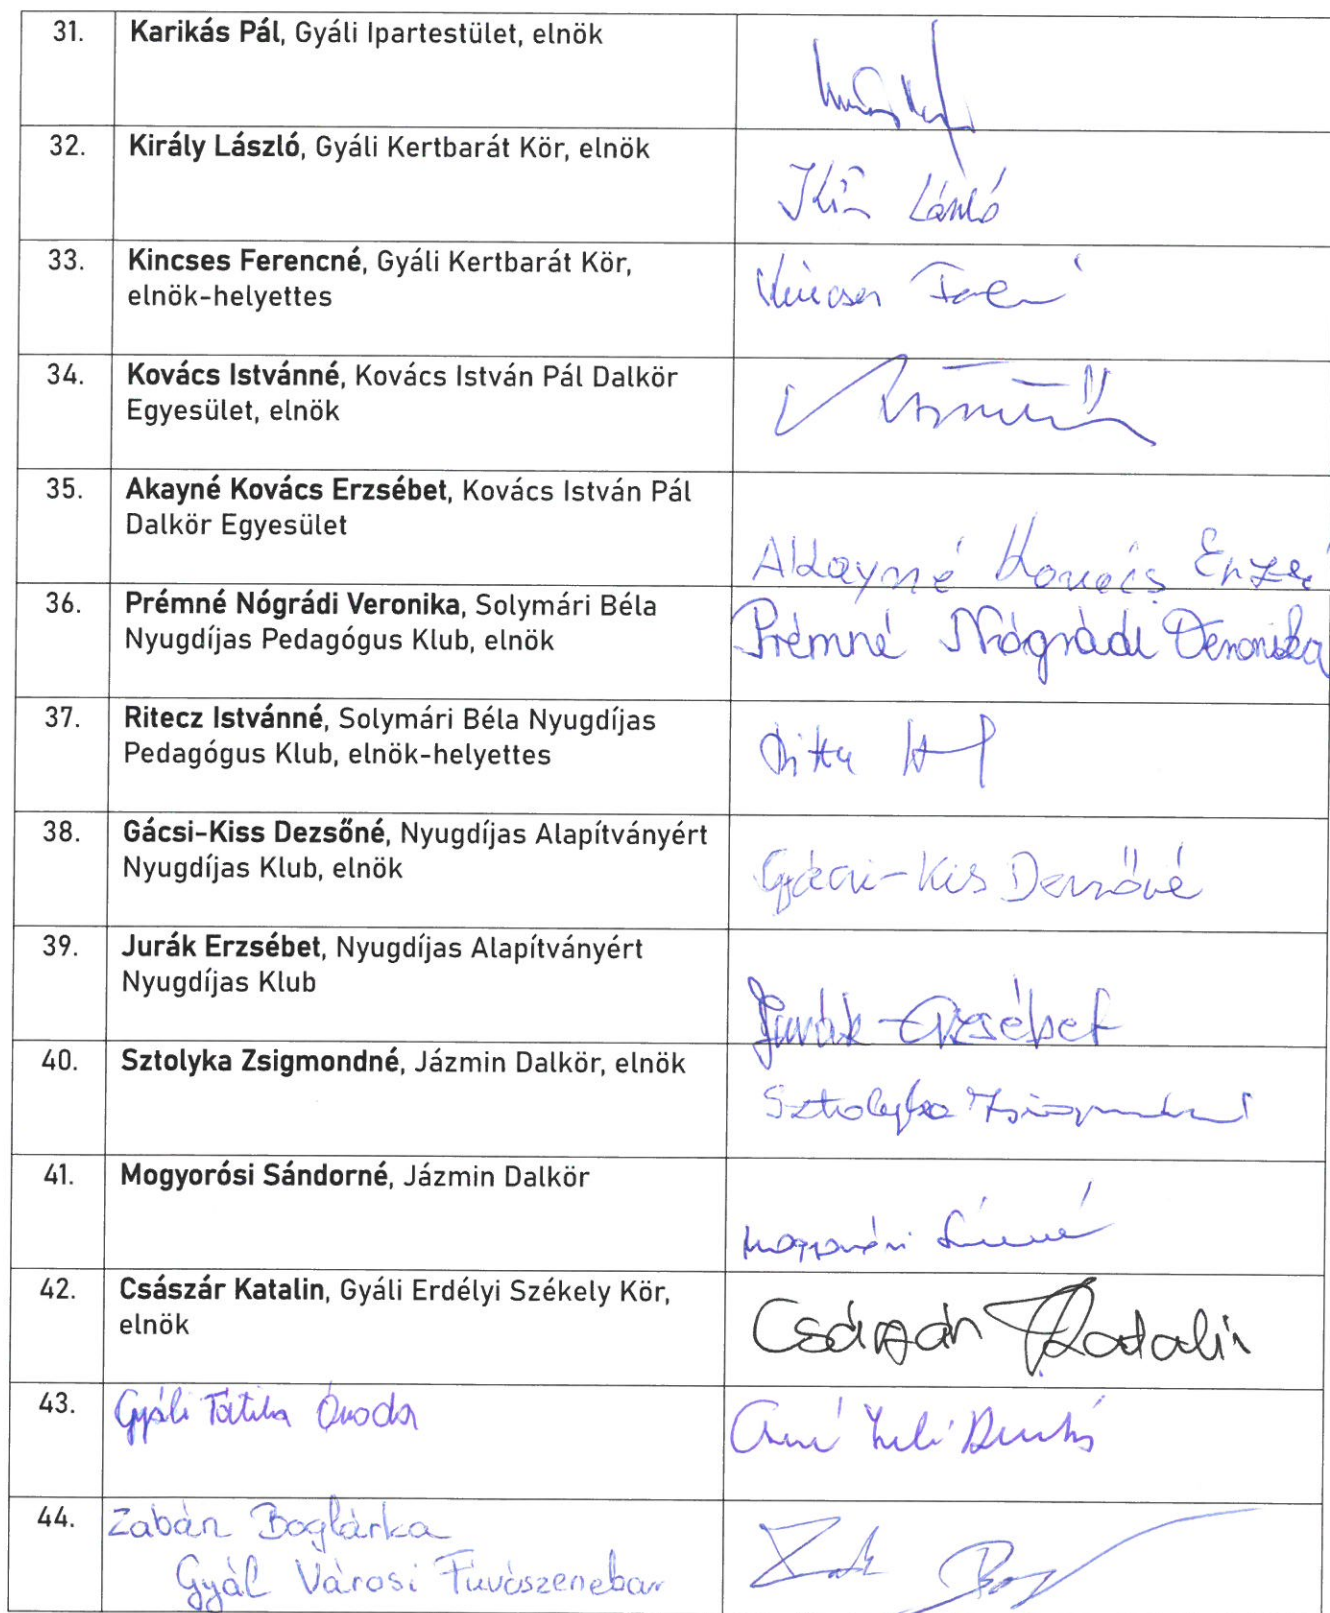 31. Karikás Pál, Gyáli Ipartestület, elnök
32. Király László, Gyáli Kertbarát Kör, elnök
László
33. Kincses Ferencné, Gyáli Kertbarát Kör,
elnök-helyettes
34. Kovács Istvánné, Kovács István Pál Dalkör
Egyesület, elnök
35. Akayné Kovács Erzsébet, Kovács István Pál
Dalkör Egyesület
Akayné Kovács
36. Prémné Nógrádi Veronika, Solymári Béla
Nyugdíjas Pedagógus Klub, elnök
Prémné Nógrádi Veronika
37. Ritecz Istvánné, Solymári Béla Nyugdíjas
Pedagógus Klub, elnök-helyettes
38. Gácsi-Kiss Dezsőné, Nyugdíjas Alapítványért
Nyugdíjas Klub, elnök
Gácsi-Kis Dezsőné
39. Jurák Erzsébet, Nyugdíjas Alapítványért
Nyugdíjas Klub
Jurák Erzsébet
40. Sztolyka Zsigmondné, Jázmin Dalkör, elnök
Sztolyka Zsigmondné
41. Mogyorósi Sándorné, Jázmin Dalkör
42. Császár Katalin, Gyáli Erdélyi Székely Kör,
elnök
Császár Katalin
43. Gyáli Tátika Óvoda
44. Zabán Boglárka
Gyál Városi Fúvószenekar